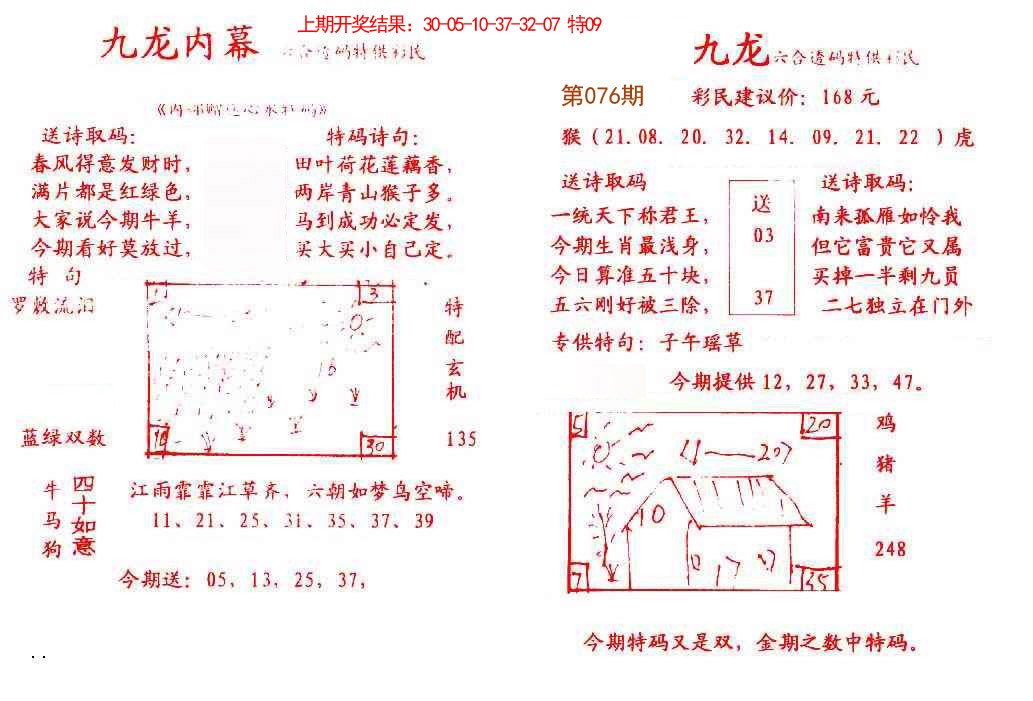 上期开奖结果：30-05-10-37-32-07 特09
九龙内幕 六合透码特供彩民
送诗取码：
春风得意发财时，
满片都是红绿色，
大家说今期牛羊，
今期看好莫放过，
特码诗句：
田叶荷花莲藕香，
两岸青山猴子多。
马到成功必定发，
买大买小自己定。
特 句
罗敷流泪
蓝绿双数
3
10
16
30
特配玄机
135
牛马狗
四十如意
江雨霏霏江草齐，六朝如梦鸟空啼。
11、21、25、31、35、37、39
今期送：05，13，25，37，
九龙 六合透码特供彩民
第076期
彩民建议价：168元
猴（21.08. 20. 32. 14. 09. 21. 22 ）虎
送诗取码
一统天下称君王，
今期生肖最浅身，
今日算准五十块，
五六刚好被三除，
送
03
37
送诗取码：
南来孤雁如怜我
但它富贵它又属
买掉一半剩九员
二七独立在门外
专供特句：子午瑶草
今期提供12，27，33，47。
5
20
10
7
35
鸡
猪
羊
248
今期特码又是双，金期之数中特码。